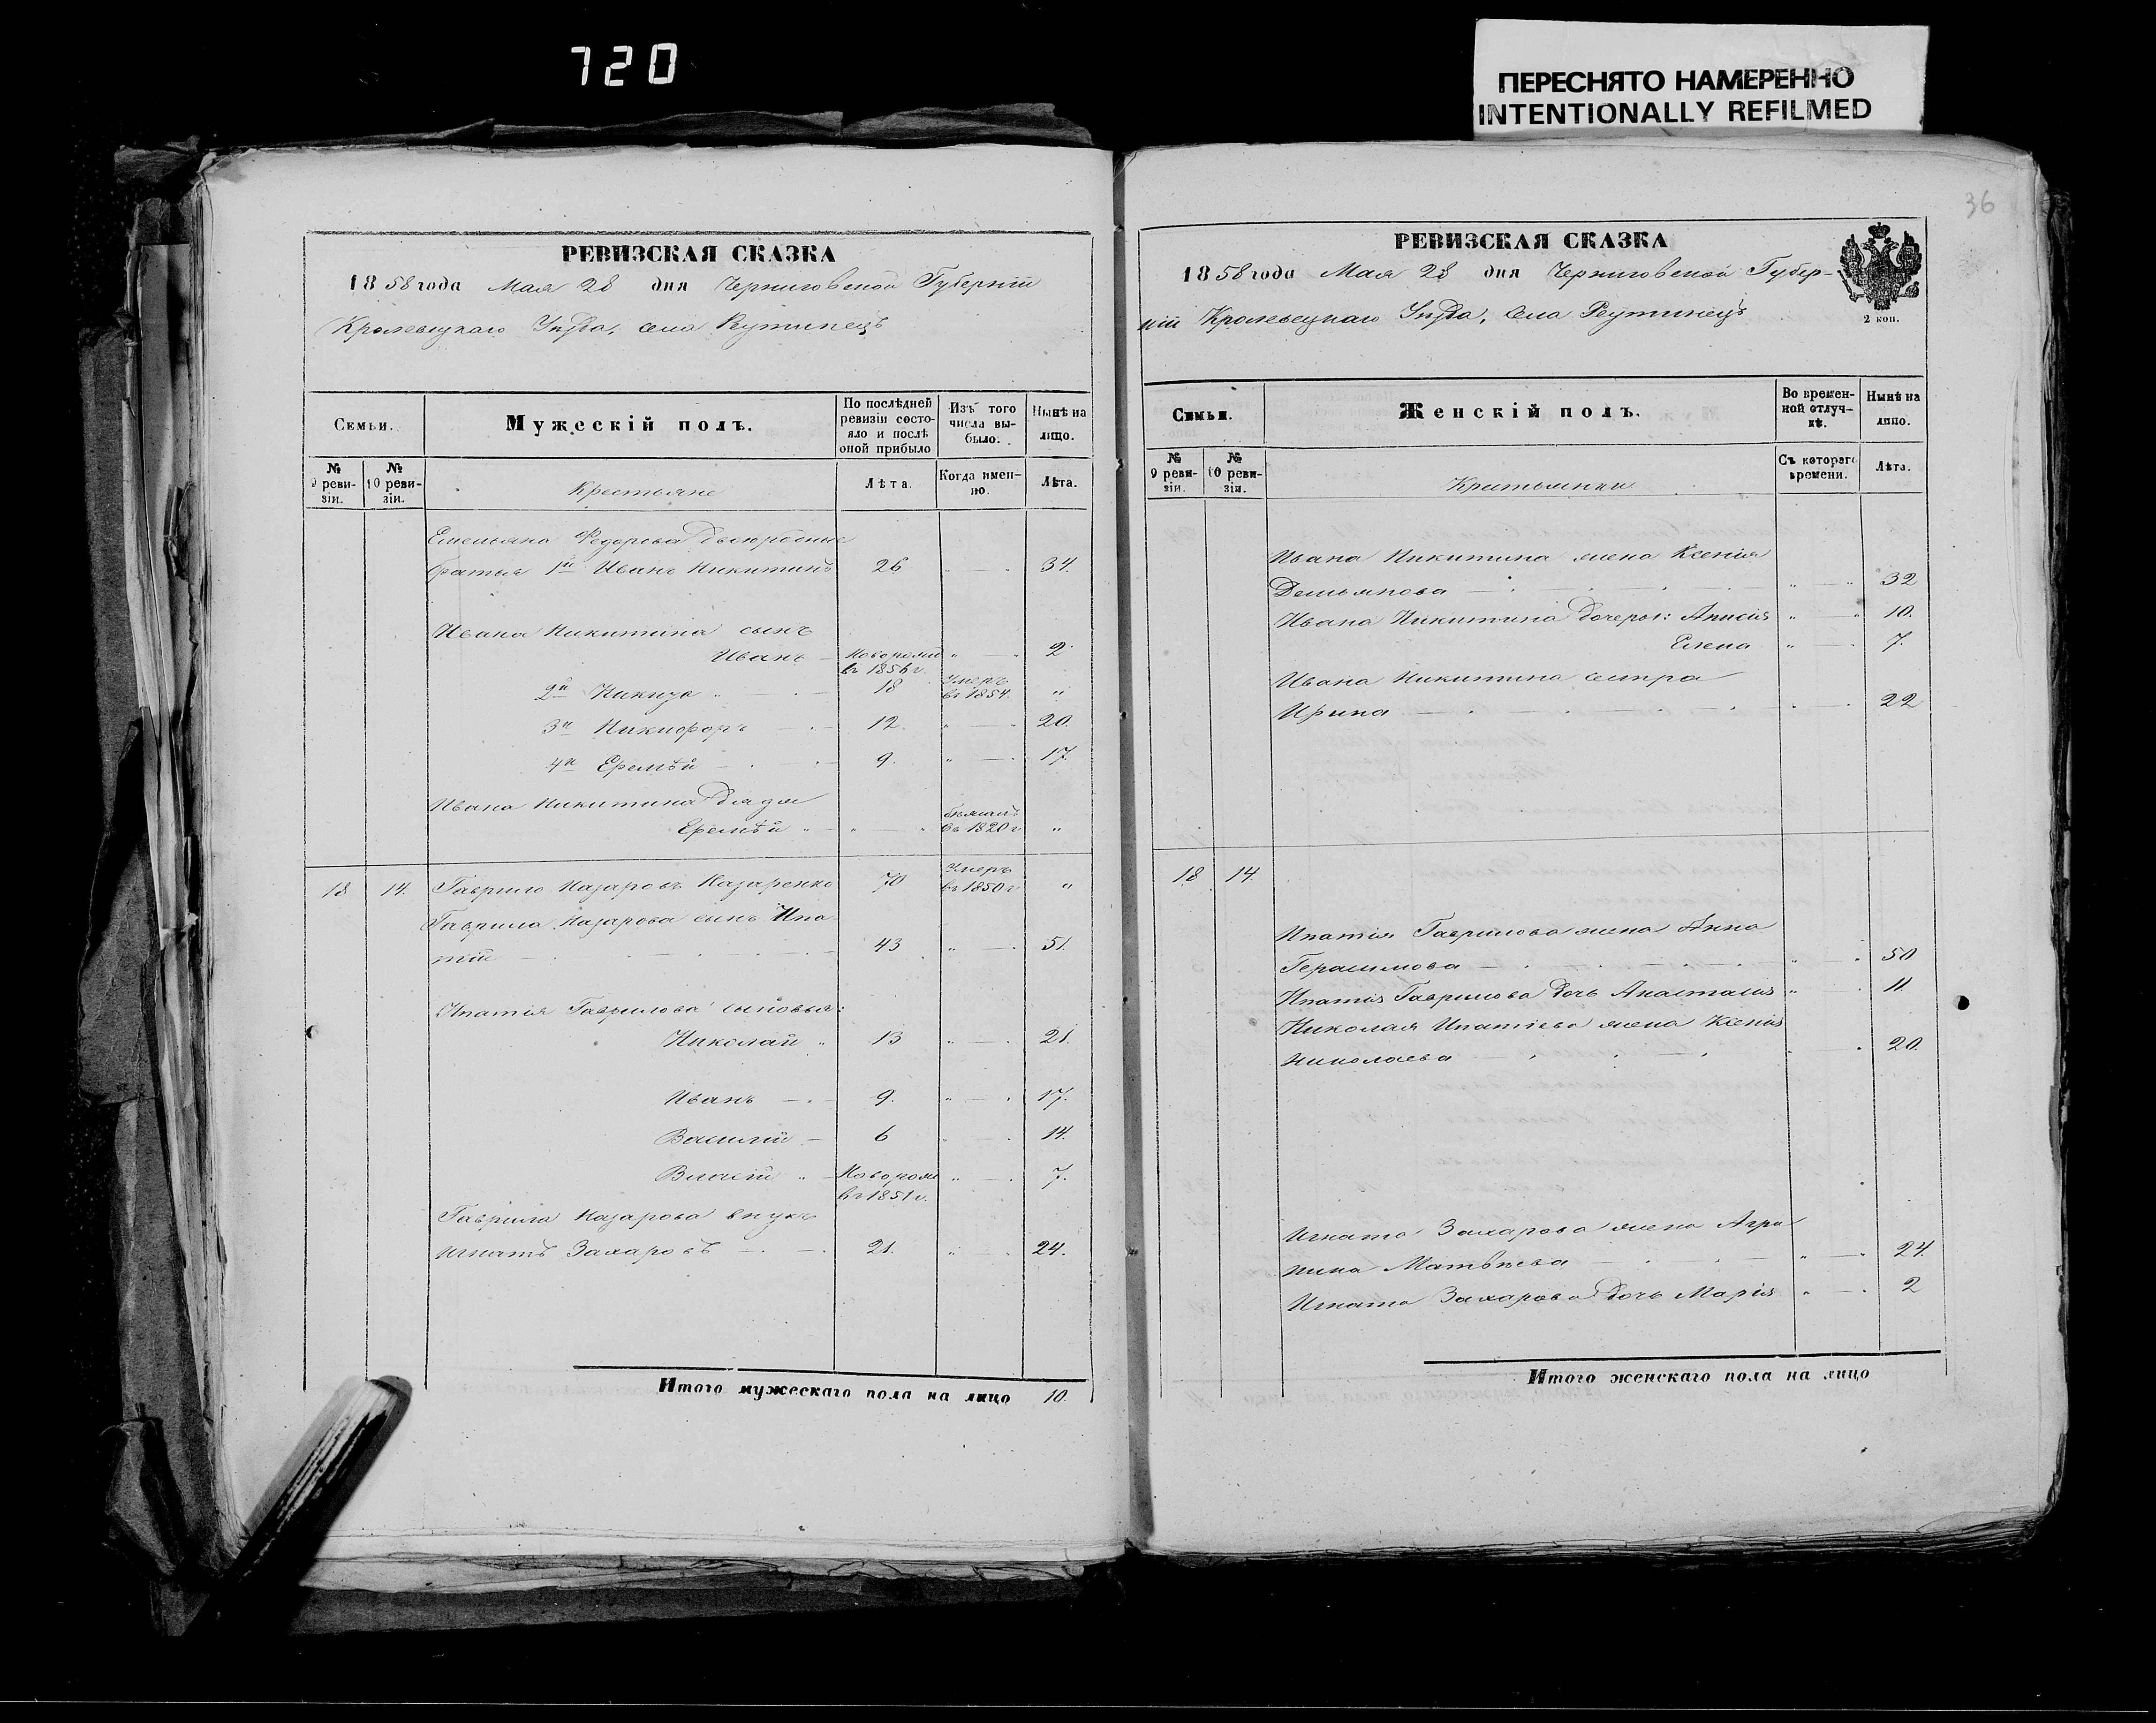 720
ПЕРЕСНЯТО НАМЕРЕННО
INTENTIONALLY REFILMED
РЕВИЗСКАЯ СКАЗКА
1858 года Мая 28 дня Черниговской Губерніи
Кролевецкаго Уѣзда, села Реутинецъ
Семьи.
Мужескій полъ.
По послѣдней ревизіи состояло и послѣ оной прибыло
Изъ того числа выбыло:
Нынѣ на лицо.
№ 9 ревизіи.
№ 10 ревизіи.
Крестьяне
Лѣта.
Когда именно.
Лѣта.
Емельяна Федорова двоюродные
братья 1й Иванъ Никитинъ 26 34.
Ивана Никитина сынъ
Иванъ Новорожд. въ 1856 г. 2
2й Никита 18 Умеръ въ 1854. "
3й Никифоръ 12. 20.
4й Еремѣй 9. 17.
Ивана Никитина дядя
Еремѣй въ 1820 г "
18. 14. Гаврило Назаровъ Назаренко 70 Умеръ въ 1850 г "
Гаврила Назарова сынъ Ипа
тій 43 51.
Ипатія Гаврилова сыновья:
Николай 13 21.
Иванъ 9. 17.
Василій 6 14.
Власій Новорож въ 1851 г. 7.
Гаврила Назарова внукъ
Игнатъ Захаровъ 21. 24.
Итого мужескаго пола на лицо 10.
36
РЕВИЗСКАЯ СКАЗКА
1858 года Мая 28 дня Черниговской Губер-
ніи Кролевецкаго Уѣзда, Села Реутинецъ
2 коп.
Семьи.
Женскій полъ.
Во временной отлучкѣ.
Нынѣ на лицо.
№ 9 ревизіи.
№ 10 ревизіи.
Крестьянки
Съ котораго времени.
Лѣта.
Ивана Никитина жена Ксенія
Демьянова 32
Ивана Никитина дочери: Анисія 10.
Елена 7.
Ивана Никитина сестра
Ирина 22
18 14.
Ипатія Гаврилова жена Анна
Герасимова 50
Ипатія Гаврилова дочь Анастасія 11.
Николая Ипатіева жена Ксенія
Николаева 20.
Игната Захарова жена Агри
пина Матвѣева 24.
Игната Захарова дочь Марія 2
Итого женскаго пола на лицо